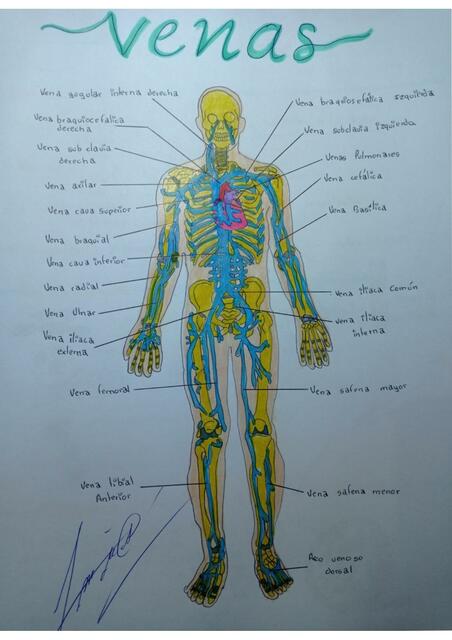 Venas
Vena yugular interna derecha
Vena braquiocefálica
derecha
Vena sub clavia
derecha
Vena axilar
Vena cava superior
Vena braquial
Vena cava inferior
Vena radial
Vena Ulnar
Vena iliaca
externa
Vena femoral
Vena tibial
Anterior
Vena braquiosefática izquierda
Vena subclavia izquierda
Venas Pulmonares
Vena cefálica
Vena Basílica
Vena iliaca común
Vena iliaca
interna
Vena safena mayor
Vena safena menor
Aco venoso
dorsal